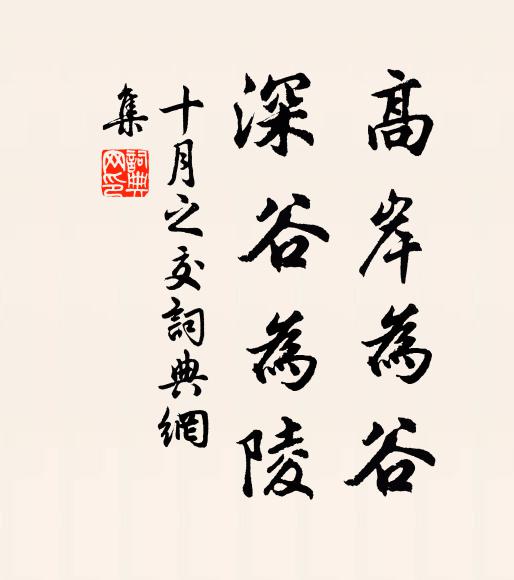 高岸為谷
深谷為陵
十月之交詞典網
集
詞典
网印